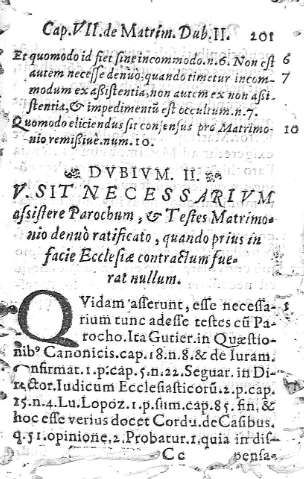 Cap. VII. de Matrim. Dub. II. 201
Et quomodo id fiet sine incommodo. n. 6. Non est 6
autem necesse denuò, quando timetur incom- 7
modum ex assistentia, non autem ex non assi-
stentia, & impedimentũ est occultum. n. 7.
Quomodo eliciendus sit consensus pro Matrimo- 10
nio remissiuè. num. 10.
DVBIVM. II.
V. SIT NECESSARIVM
assistere Parochum, & Testes Matrimo-
nio denuò ratificato, quando prius in
facie Ecclesiæ contractum fue-
rat nullum.
QVidam asserunt, esse necessa-
rium tunc adesse testes cũ Pa-
rocho. Ita Gutier. in Quæstio-
nib⁹ Canonicis. cap. 18. n. 8. & de Iuram.
confirmat. 1. p. cap. 5. n. 22. Seguar. in Di-
rector. Iudicum Ecclesiasticorũ. 2. p. cap.
15. n. 4. Lu. Lopoz. 1. p. sum. cap. 85. fin. &
hoc esse verius docet Cordu. de Casibus.
q. 51. opinione, 2. Probatur. 1. quia in dis-
Cc pensa-